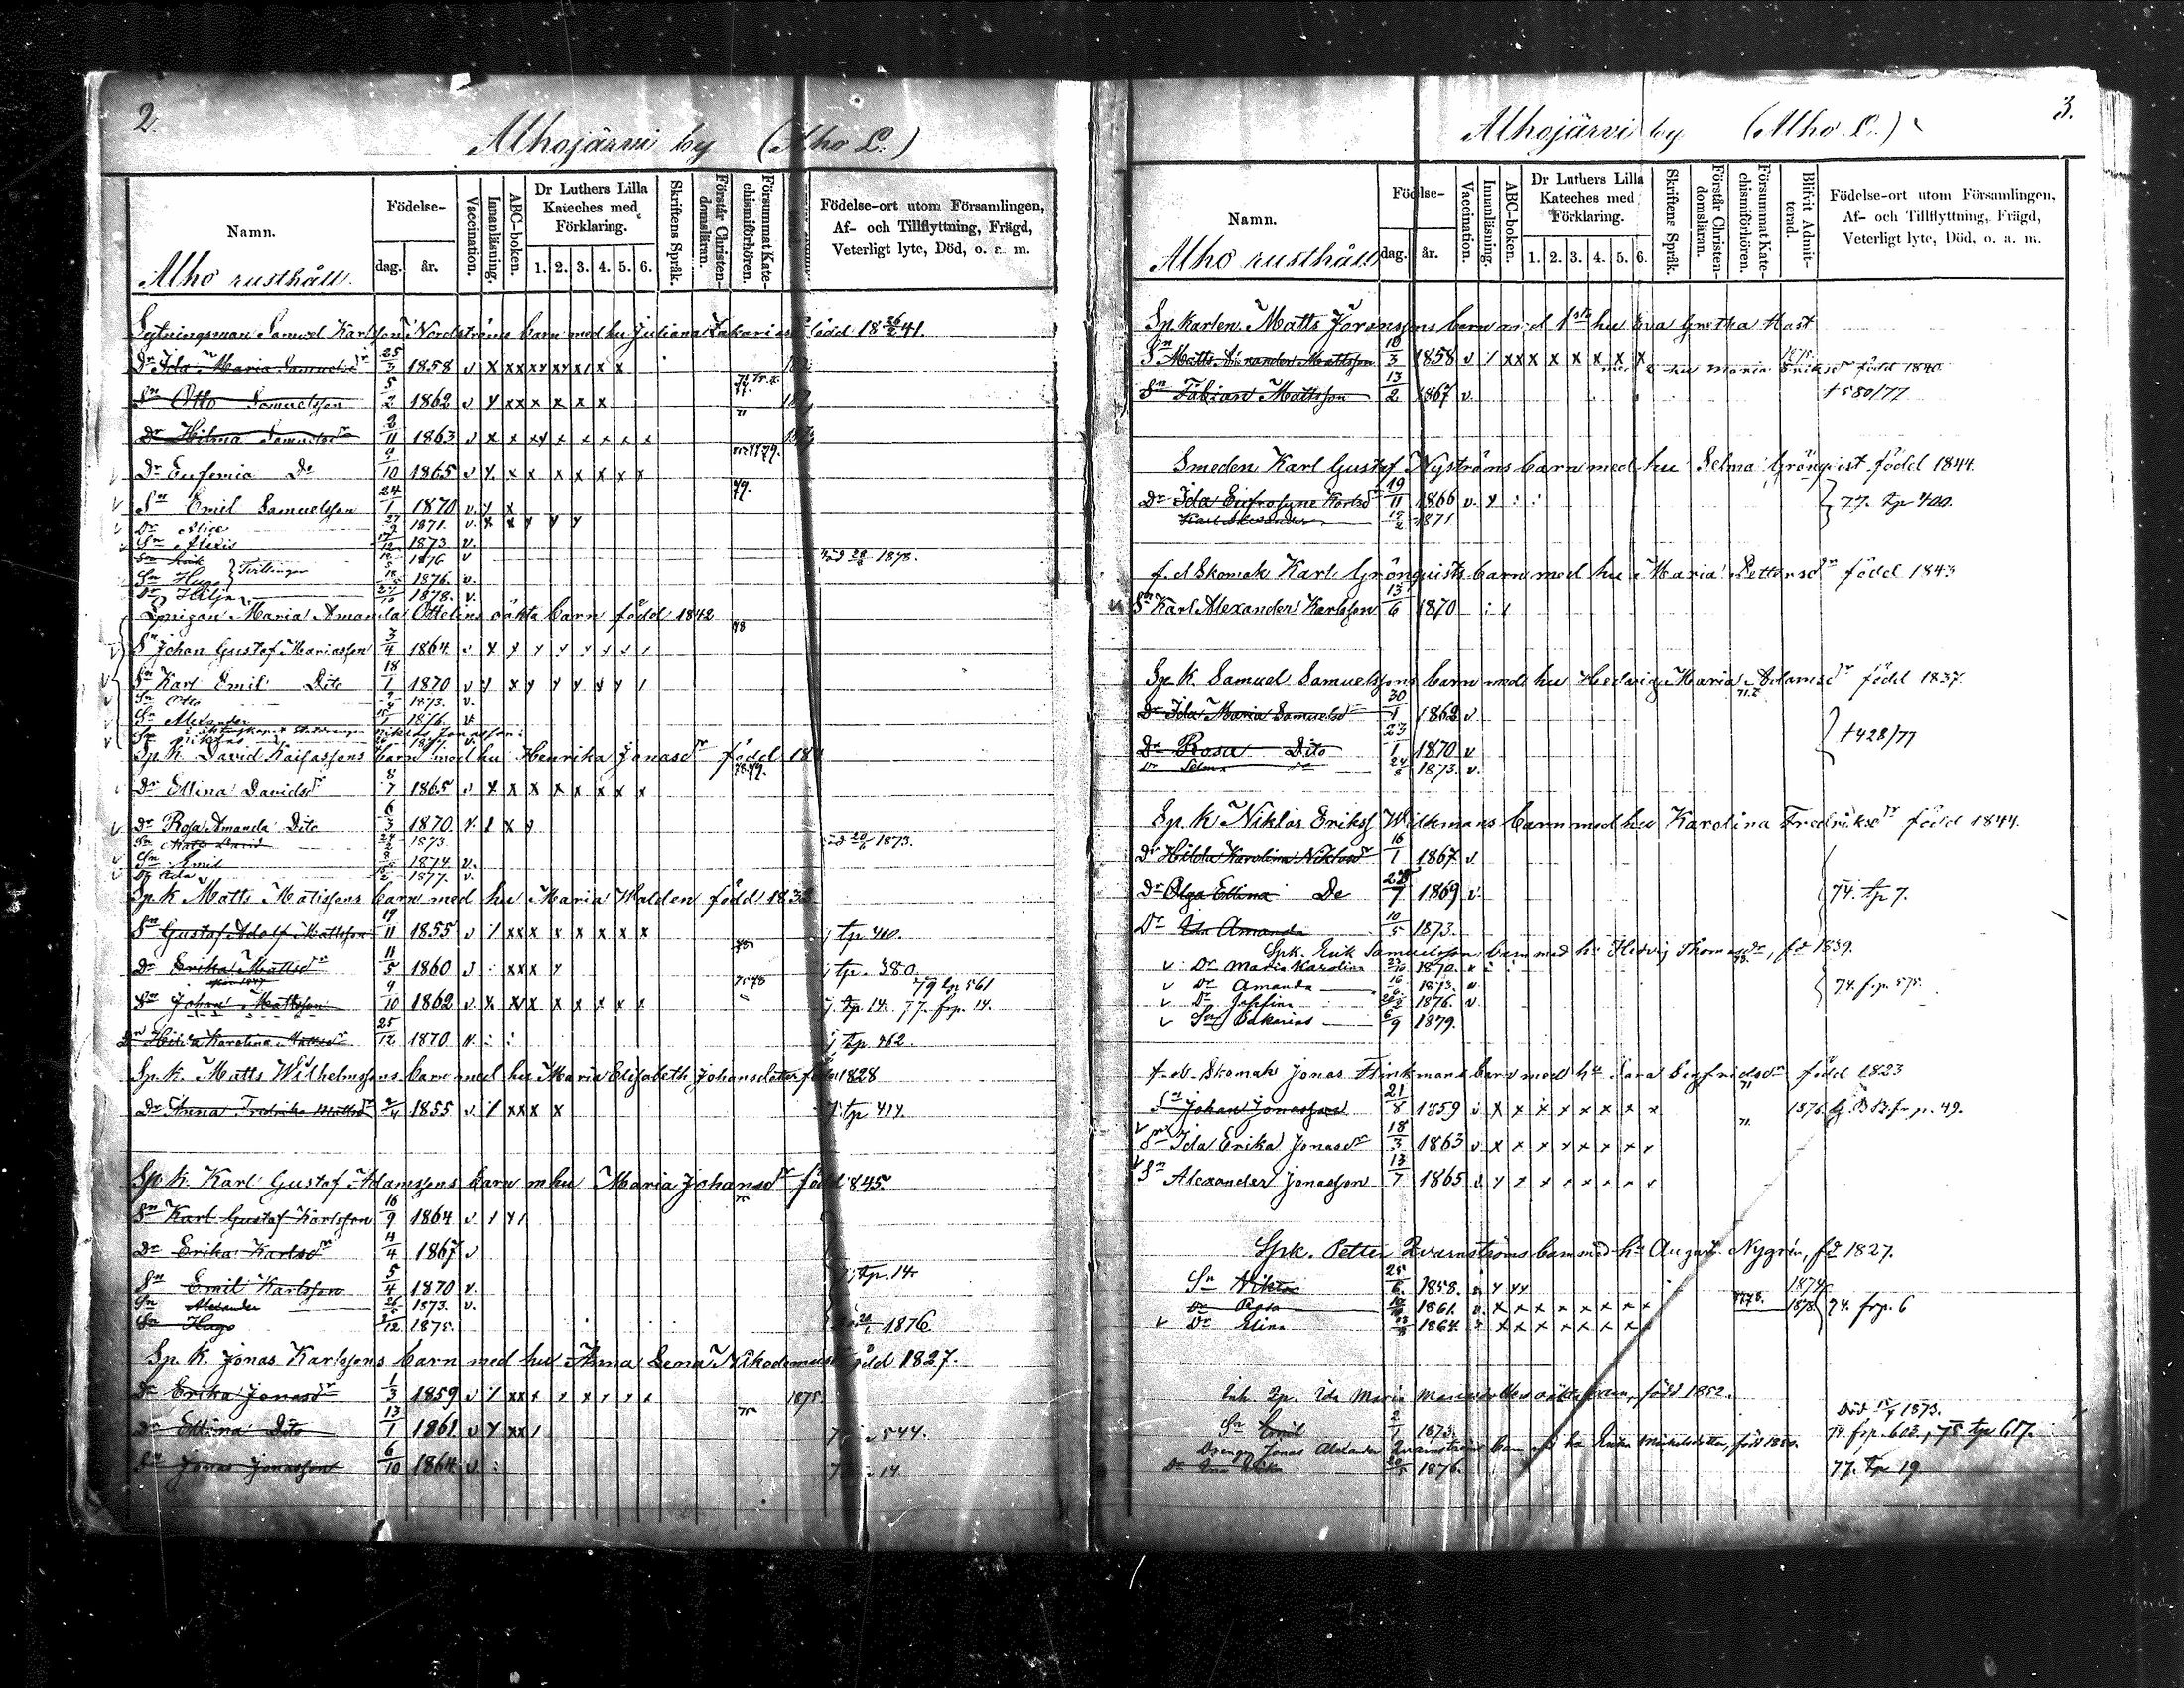 2.
Alhojärvi by (Alho L.)
Namn.
Födelse-
dag. år.
Vaccination.
Innanläsning.
ABC-boken.
Dr Luthers Lilla Kateches med Förklaring.
1. 2. 3. 4. 5. 6.
Skriftens Språk.
Förstår Christendomsläran.
Försummat Katechismiförhören.
Födelse-ort utom Församlingen, Af- och Tillflyttning, Frägd, Veterligt lyte, Död, o. s. m.
Alho rusthåll.
Sytningsman Samuel Karlssons Nordströms barn med hu Juliana Zakariasdr född 18 26/2 41.
Dr Ida Maria Samuelsdr 25/3 1858 v x xx xy xy x x x
Sn Otto Samuelsson 5/2 1862 v y xx x x x x
Dr Hilma Samuelsdr 2/11 1863 v x x xy x x x x x
Dr Eufemia Do 9/10 1865 v y x x x x x x x
Sn Emil Samuelsson 24/1 1870 v y x 79.
Dr Alice 1871. v. x x y y y
Sn Alexis 17/12 1873 v.
1876 v död 1878.
Sn Hugo } Tvillingar 1876. v.
Dr Hilja 1878. v.
Spigan Maria Amanda Ottelins oäkta barn född 1842
Sn Johan Gustaf Mariasson 3/4 1864 v x y y y y y / 78
Sn Karl Emil Dito 18/1 1870 v y x y y y y y /
Sn Otto 1873. v.
Sn Alexander 1876 v.
Sn Niklas
Sp. k. David Kaifassons barn med hu Henrika Jonasdr född 184
Dr Ellina Davidsdr 8/7 1865 v x x x x x x x x
Dr Rosa Amanda Dito 6/3 1870 v. / x y
Sn Matts David 1873 död 20/6 1873.
Sn Emil 1874 v.
Dr Ida 1877. v.
Sp. k. Matts Matissons barn med hu Maria Walden född 183
Sn Gustaf Adolf Mattsson 19/11 1855 v / xx x x x x x x tp 410.
Dr Erika Mattsdr 11/5 1860 v : xxx y tp. 380.
79 tp 561
Sn Johan Mattsson 9/10 1862 v x x x x x x x x tp. 14. 77. frp. 14.
Dr Hilda Karolina Mattsdr 25/12 1870 v : : tp. 462.
Sp. k. Matts Wilhelmssons barn med hu Maria Elisabeth Johansdotter född 1828
Dr Anna Fredrika Mattsdr 2/4 1855 v / xxx x tp 414.
Sp. k. Karl Gustaf Adamssons barn m hu Maria Johansdr född 1845.
Sn Karl Gustaf Karlsson 16/9 1864 v / y /
Dr Erika Karlsdr 4/4 1867 v
Sn Emil Karlsson 5/4 1870 v. tp. 14.
Sn Alexander 1873. v.
Sn Hugo 1875. 1876
Sp. k. Jonas Karlssons barn med hu Anna Lena Nikodemusdr född 1827.
Dr Erika Jonasdr 1/3 1859 v / xx x x x x x x 1875.
Dr Ellina Dito 13/1 1861 v y xx / 544.
Sn Jonas Jonasson 6/10 1864 v. : 14.
3.
Alhojärvi by (Alho L.)
Namn.
Födelse-
dag. år.
Vaccination.
Innanläsning.
ABC-boken.
Dr Luthers Lilla Kateches med Förklaring.
1. 2. 3. 4. 5. 6.
Skriftens Språk.
Förstår Christendomsläran.
Försummat Katechismiförhören.
Blifvit Admitterad.
Födelse-ort utom Församlingen, Af- och Tillflyttning, Frägd, Veterligt lyte, Död, o. a. m.
Alho rusthåll
Sp. karlen Matts Joranssons barn med 1sta hu Eva Gretha Mast
Sn Matts Alexander Mattsson 10/3 1858 v / xx x x x x x x 1875.
med 2 hu Maria Eriksdr född 1840
Sn Fabian Mattsson 13/2 1867 v. † 580/77
Smeden Karl Gustaf Nyströms barn med hu Selma Grönqist född 1844.
Dr Ida Eufrosyne Karlsdr 19/11 1866 v. y : : } 77. tp 400.
Karl Alexander 17/2 1871
f. d Skomak Karl Grönquists barn med hu Maria Pettersdr född 1843
Sn Karl Alexander Karlsson 13/6 1870 : /
Sp. k. Samuel Samuelssons barn med hu Hedvig Maria Adamsdr född 1837.
Dr Ida Maria Samuelsdr 30/1 1862 v
Dr Rosa Dito 23/1 1870 v } † 428/77
Dr Selma Do 24/8 1873. v.
Sp. k Niklas Erikss Wilkmans barn med hu Karolina Fredriksdr född 1844.
Dr Hilda Karolina Niklasdr 16/1 1867 v
Dr Olga Ellina Do 28/7 1869 v. } 74. tp 7.
Dr Ida Amanda 10/5 1873.
Spk. Erik Samuelssons barn med hu Hedvig Thomasdr, fd 1839.
v Dr Maria Karolina 1870. x : :
v Dr Amanda 16/6 1873. v } 74. frp. 575.
v Dr Josefina 1876. v
v Sn Sakarias 6/9 1879.
f. d. Skomak Jonas Flinkmans barn med hu Sara Sigfridsdr född 1823
Sn Johan Jonasson 21/8 1859 v x x x x x x x x 1876. G. B. B. fr p. 49.
Dr Ida Erika Jonasdr 18/3 1863 v x x x x x x x x
Sn Alexander Jonasson 13/7 1865 v y x x x x x x x
Spk. Petter Qvarnströms barn med hu August. Nygrén, fd 1827.
Sn Viktor 25/6 1858. v y yy 1874
Dr Rosa 1861. v. x x x x x x x x 1878 } 74. frp. 6
v Dr Elina 1864. x x x x x x x x
Inh. Zp. Ida Maria Mariasdotters oäkta barn, född 1852.
Död 15/7 1873.
Sn Emil 2/1 1873. 74. frp. 602., 75 tp 617.
Drengen Jonas Alexander Qvarnströms barn med hu Erika Mickelsdotter, född 1850.
Dr 20/5 1876. 77. tp 19.